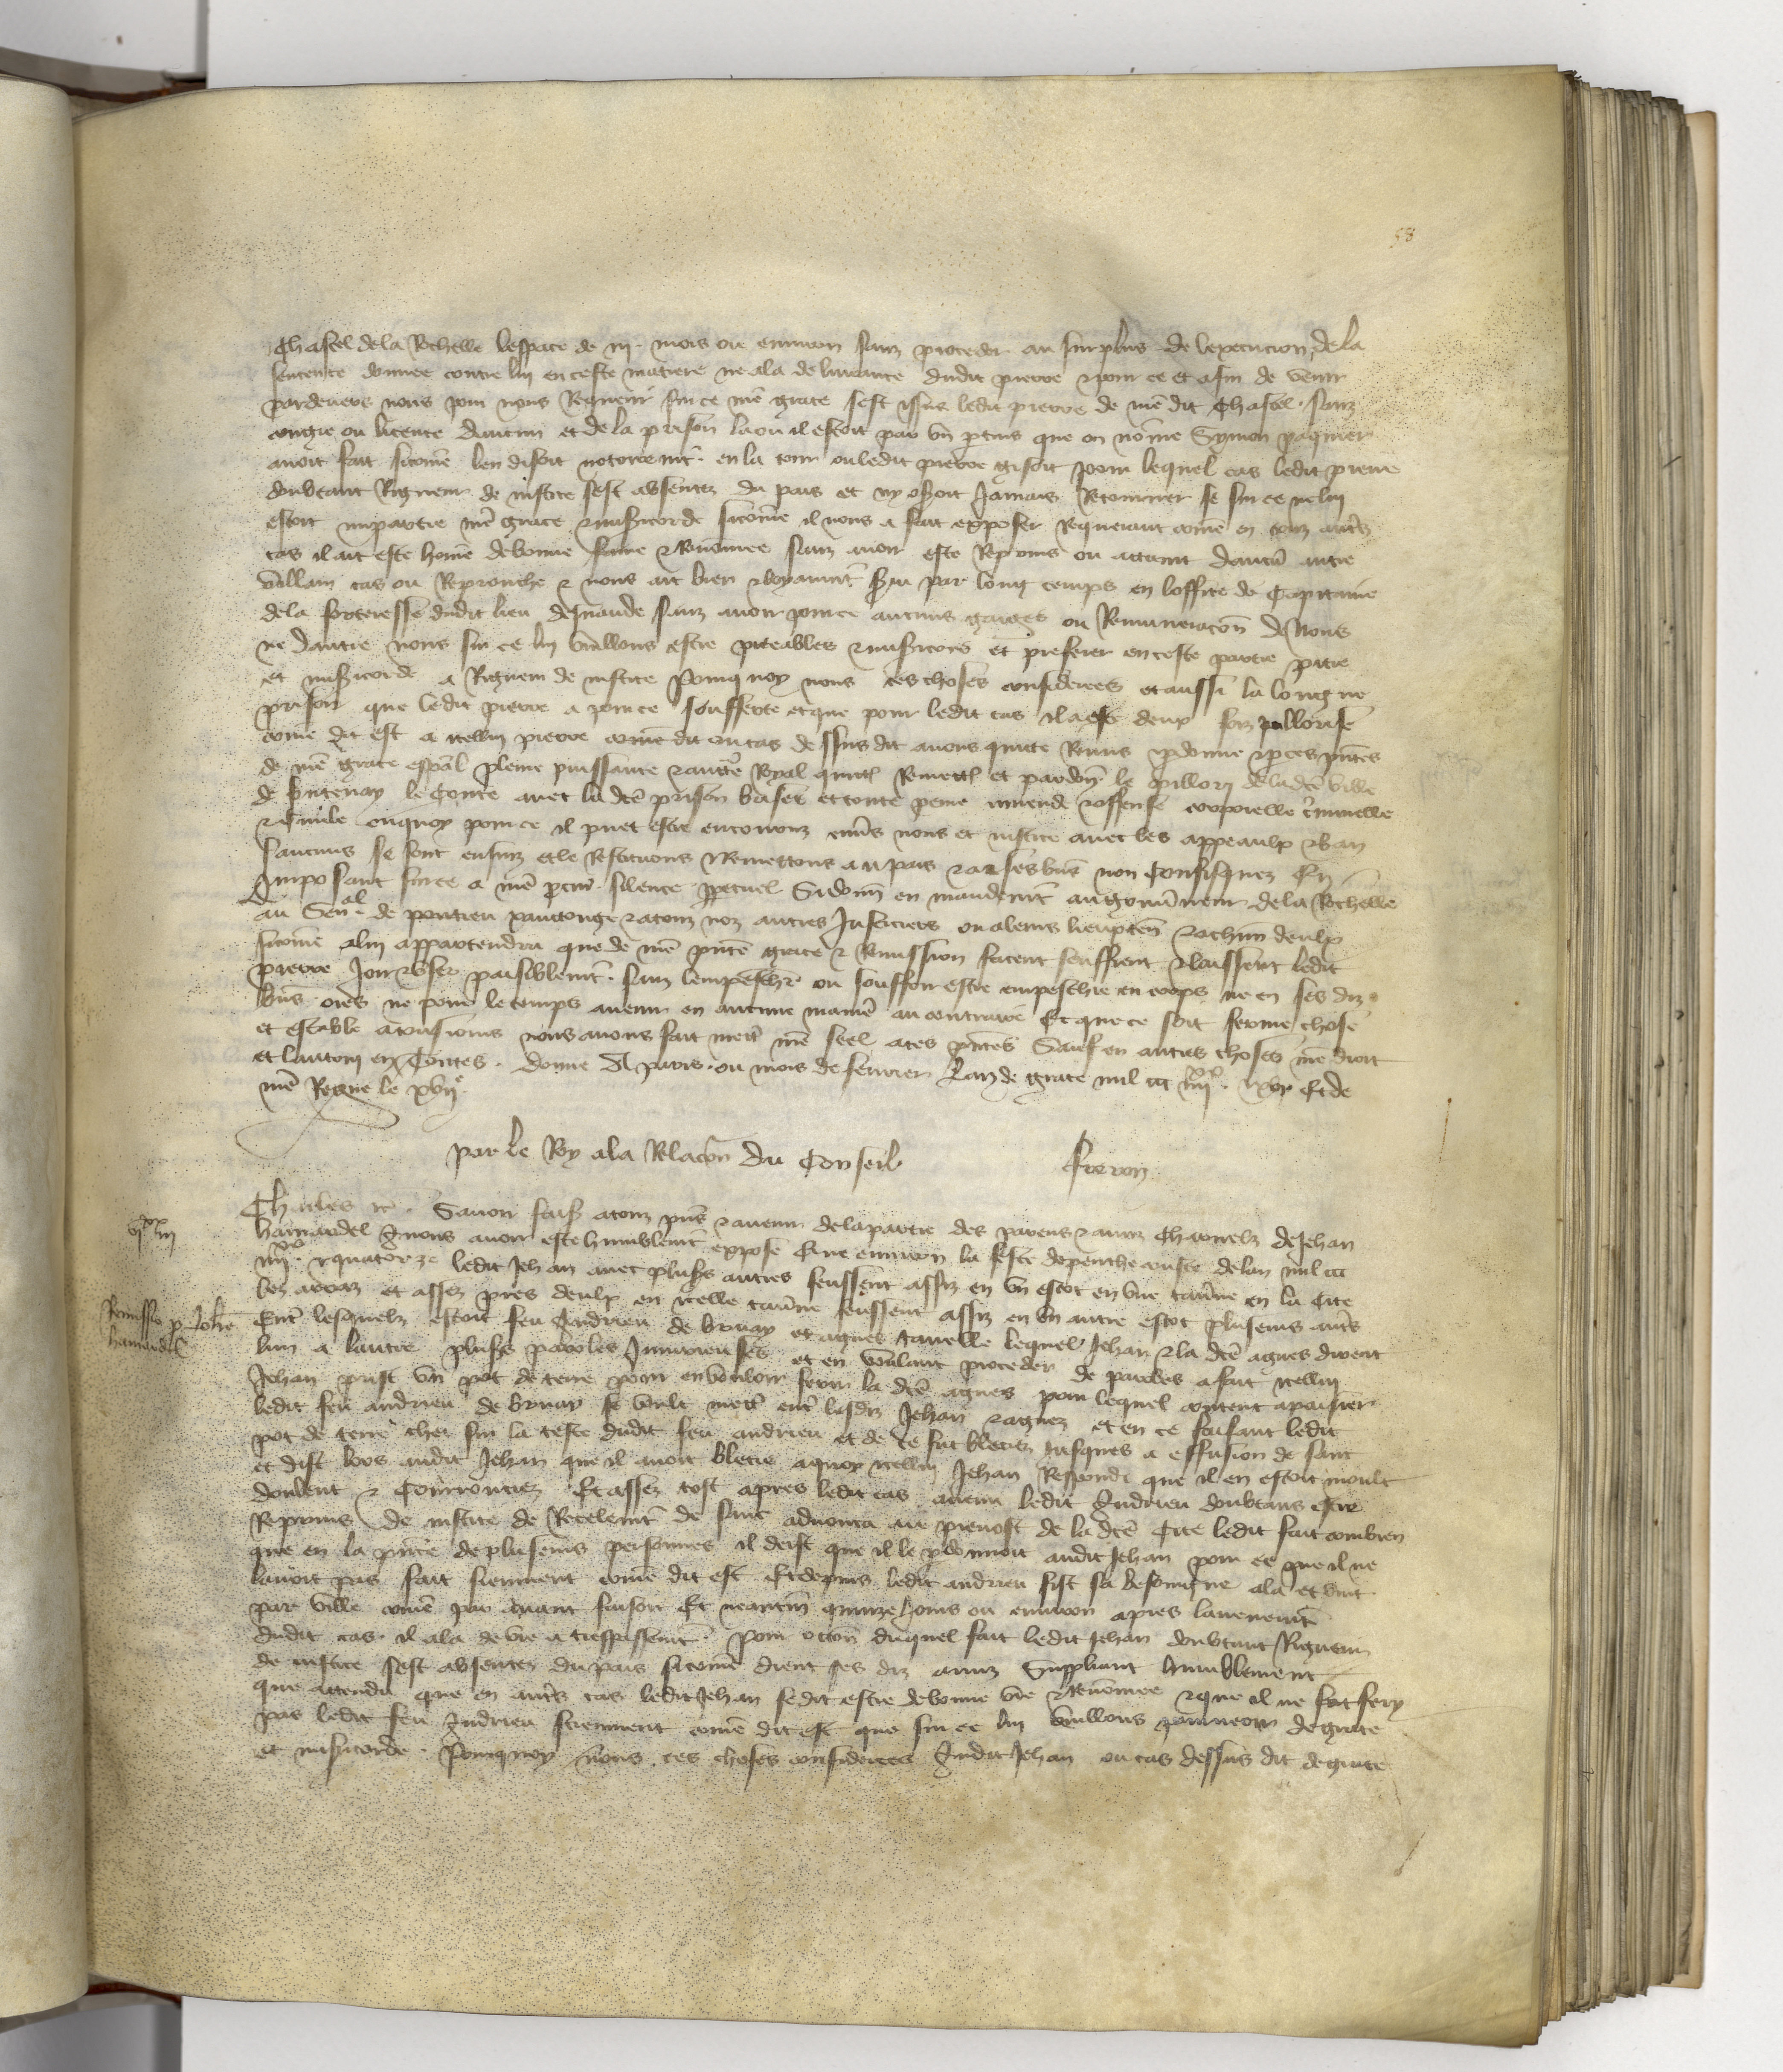 58
Chastel de la Rochelle lespace de iij. mois ou environ sanz proceder au surplus de lexecucion de la
sentence donnee contre lui en ceste matiere ne a la delivrance dudit pierre et pour ce et afin de venir
pardevers nous pour nous Requerir sur ce nre grace sest issus ledit pierre de nre dit Chastel sanz
congie ou licence daucun et de la prison la ou il estoit par un pertuis que on nomme Symon paquier
avoit fait sicome len disoit notoirement en la tour ou ledit pierre gisoit pour lequel cas ledit pierre
doubtant Rigueur de justice sest absentez du pais et ny oseroit Jamais Retourner se sur ce ne lui
estoit impartie nre grace et misericorde sicome il nous a fait exposer Requerant come en touz autres
cas il ait este home de bonne fame et Renomee sanz avoir este Repris ou attaint daucun autre
villain cas ou Reprouche et nous ait bien et loyaument servi par long temps en loffice de Capitaine
de la forteresse dudit lieu de sanz avoir pour ce aucuns gaiges ou Remuneracon de Nous
ne dautre nous sur ce lui vueillons estre piteables et misericors et preferer en ceste partie pitie
et misericorde a Rigueur de justice Pourquoy nous ces choses considerees et aussi la longue
prison que ledit pierre a pour ce soufferte et que pour ledit cas il a este deux foiz pillorise
come dit est a icellui pierre ou cas dessus dit avons quitte Remis et pdonne et p ces pntes
de nre grace espal pleine puissance et auctte Royal quitt Remett et pardon le pillory de la dce ville
de fontenay le Conte avec la dce prison brisee et toute peine amende et offense corporelle criminelle
et civile en quoy pour ce il puet estre encouruz envs nous et justice avec les appeaulx et ban
saucuns se sont ensuiz et le Restituons et Remettons au pais et a ses biens non Confisquez En
Imposant sur ce a nre pcur silence ppetuel Si donn en mandemt au gouvneur de la Rochelle
au Senal de poitiou xantonge et a touz noz autres Justiciers ou a leurs lieuxten et a chun deulx
sicome a lui appartendra que de nre pnte grace et Remission facent seuffrent et laissent ledit
pierre Joir et user paisiblemt sanz lempescher ou souffrir estre empeschie en corps ne en ses diz
biens ores ne pour le temps avenir en aucune manie au contraire Et que ce soit ferme chose
et estable a tousjours nous avons fait mett nre seel a ces pntes Sauf en autres choses nre droit
et lautrui en toutes. Donne A paris ou mois de fevrier Lan de grace mil ccc iiijxx. xvj Et de
nre Regne le xvije.
par le Roy a la Relacon du Conseil Freron
vjxx iiij
Charles etc. Savoir faiss a touz pns et avenir de la partie des parens et amis Charnelz de Jehan
hamardel Nous avoir este humblemt expose Que environ la feste de penthecouste de lan mil ccc
iiijxx. et quatorze ledit Jehan avec plusrs autres feussent assiz en un escot en une tavne en la Cite
Remissio p Johe
hamardel
et assez pres deulx en icelle tavne feussent assiz en un autre escot plusieurs autrs
Entre lesquelz estoit feu Andrieu de bruay et agnes tavelle lequel Jehan et la dce agnes dirent
lun a lautre plusrs paroles Injurieuses et en voulant proceder de paroles a fait icellui
Jehan prist un pot de terre pour en vouloir ferir la dce agnes pour lequel content apaisier
ledit feu andrieu de bruay se voult mett entre lesdiz Jehan et agnes et en ce faisant ledit
pot de terre chei sur la teste dudit feu andrieu et de ce fut bleciez jusques a effusion de sanc
et dist lors audit Jehan que il avoit blecie a quoy icellui Jehan Respondi que il en estoit moult
dolent et Courrouciez Et assez tost apres ledit cas avenu ledit Andrieu doubtans estre
Repriins de justice de Recelemt de sanc adnonca au prevost de la dce Cite ledit fait combien
que en la pnce de plusieurs personnes il deist que il le pdonnoit audit Jehan pour ce que il ne
lavoit pas fait sciemment come dit est Et depuis ledit andrieu fist sa besoingne ala et vint
par ville come par avant faisoit Et neantm quinze jours ou environ apres lavenemt
dudit cas il ala de vie a trespassemt. Pour occon duquel fait ledit Jehan doubtant Rigueur
de justice sest absentez du pais sicome dient ses diz amiz Suppliant humblement
que attendu que en autrs cas ledit Jehan se dit estre de bonne vie et Renomee et que il ne fery
pas ledit feu Andrieu sciemment come dit est que sur ce lui vueillons pourveoir de grace
et misericorde. Pourquoy Nous ces choses considerees Audit Jehan ou cas dessus dit de grace